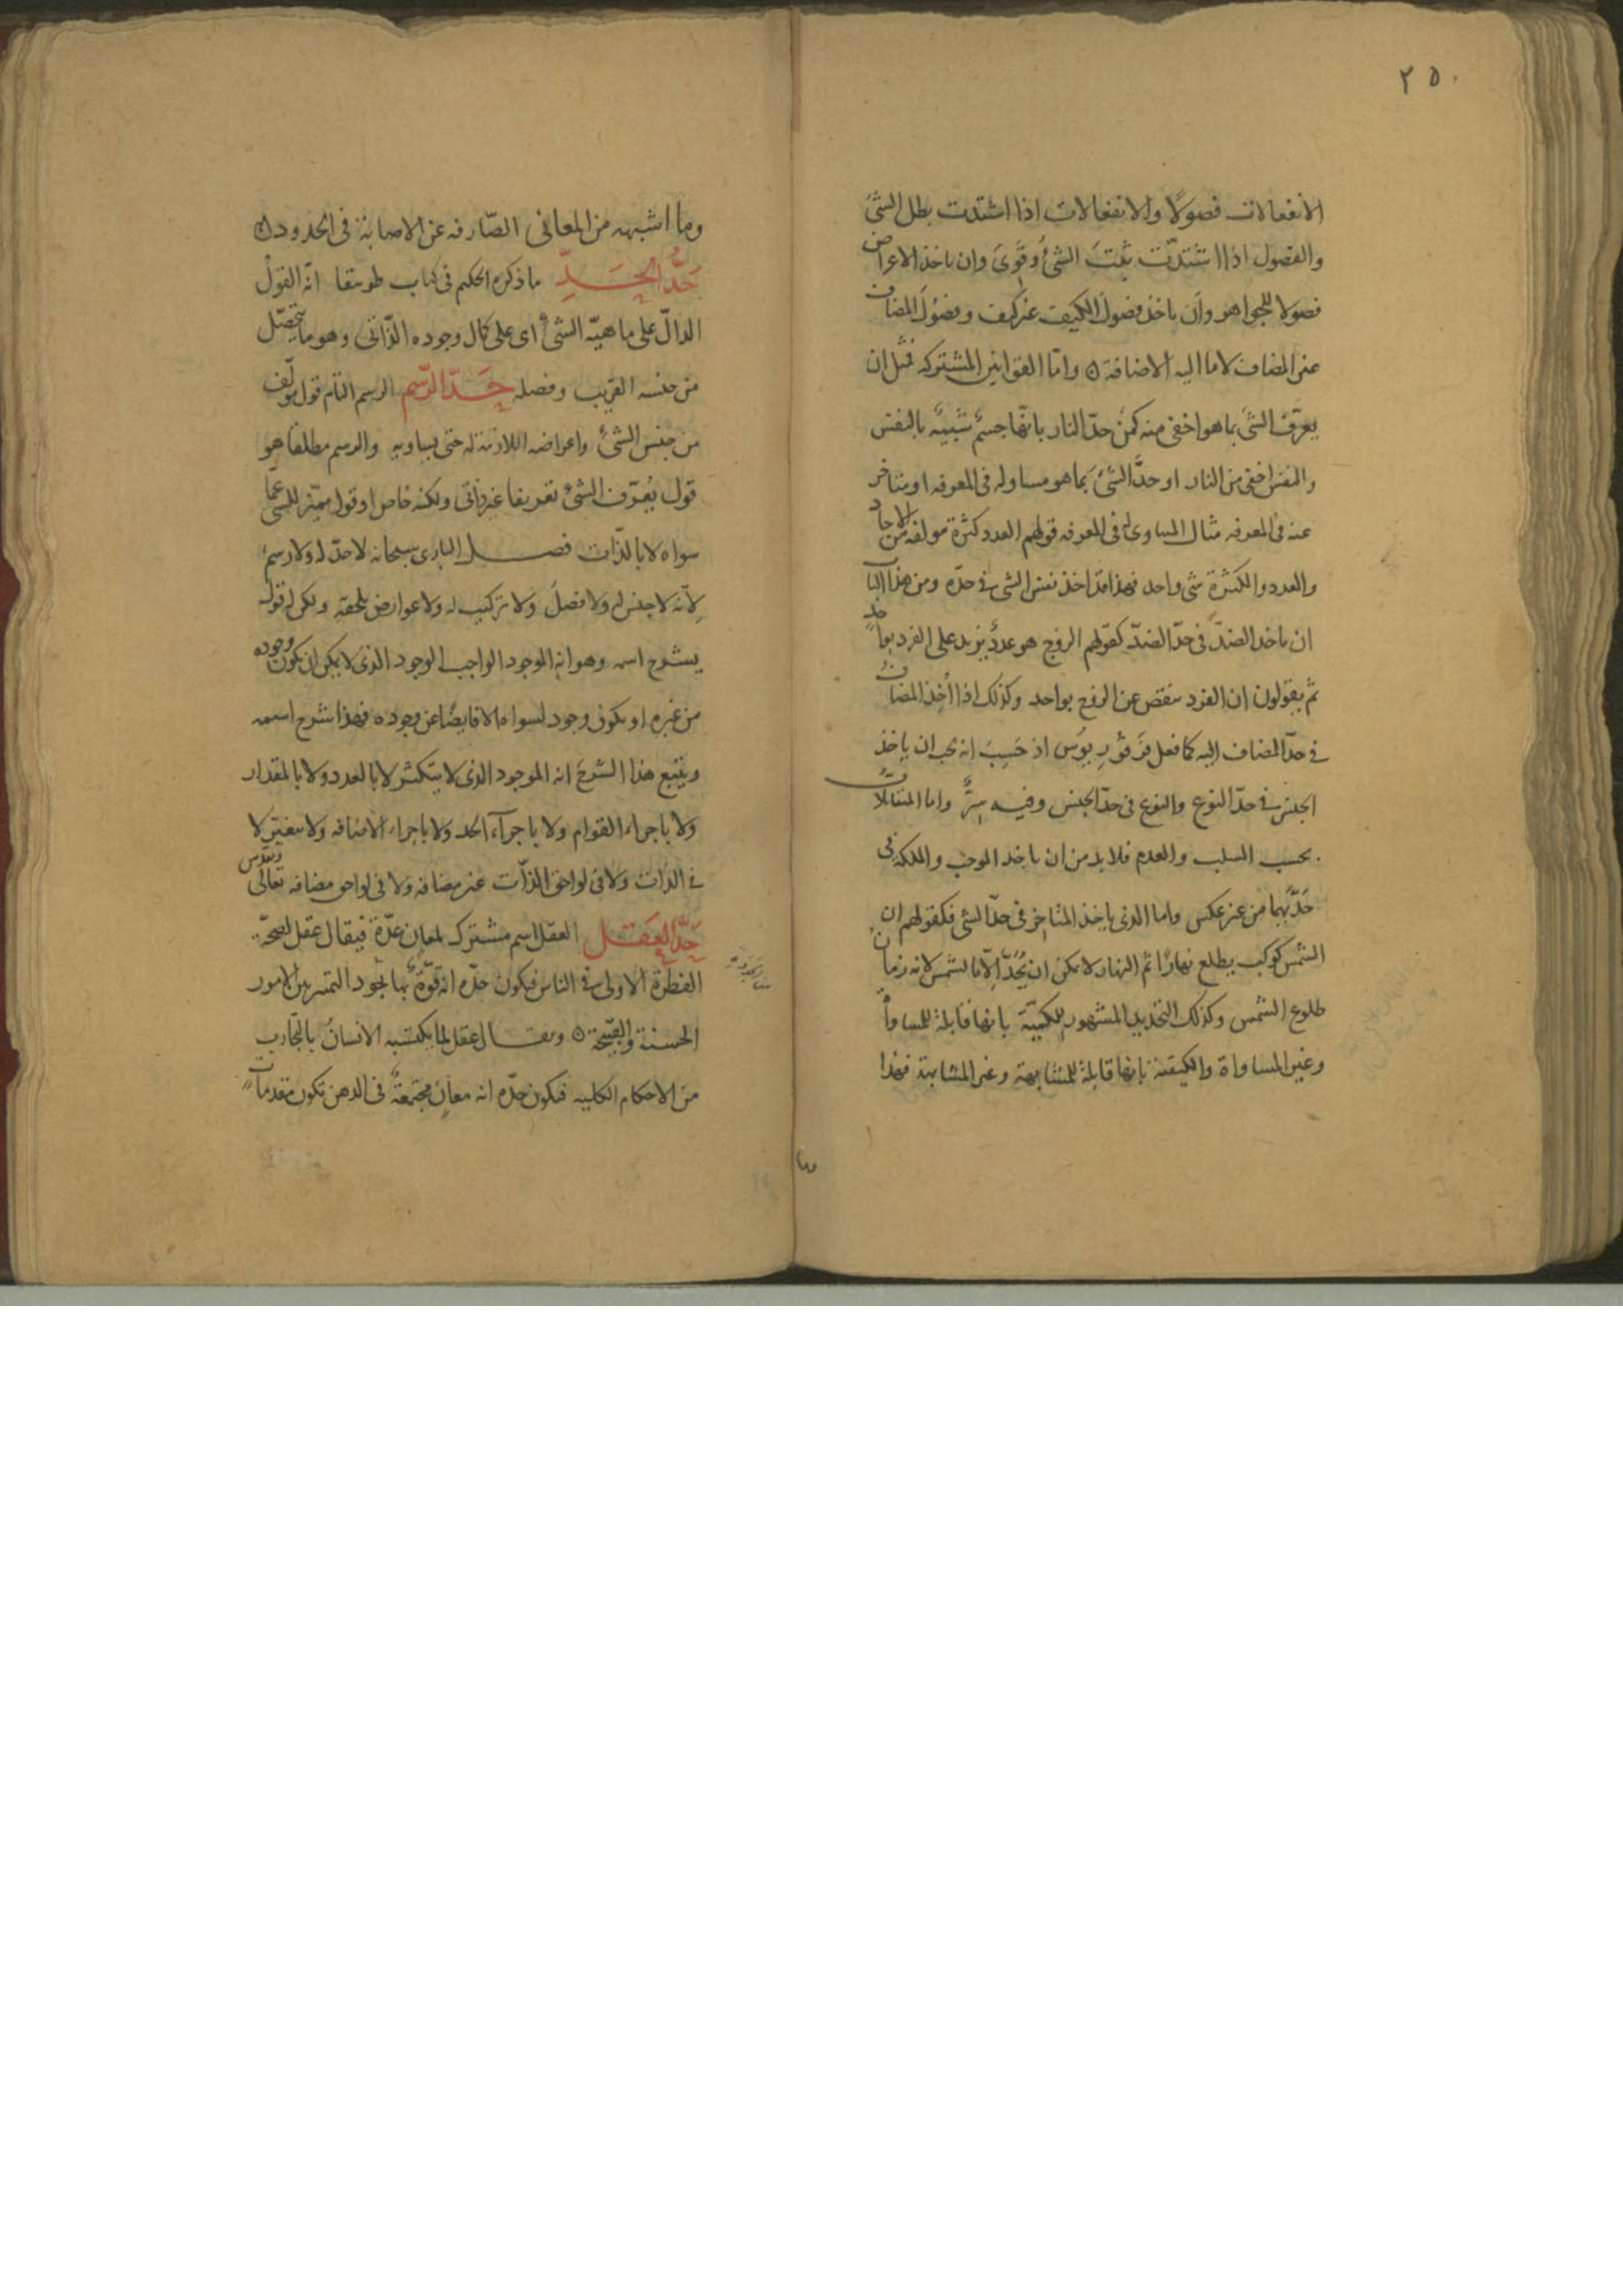 ٢٥٠
الانفعالات فصولًا والانفعالات اذا اشتدت بطل الشئ
والفصول اذا اشتدّت ثبتَ الشئُ وقَوِىَ وان ياخذ الاعراض
فصولا للجواهر وان ياخذ فصولَ الكيف غير كيف وفصُولَ المضاف
غير المضاف لا ما اليه الاضافة ۞ وامّا القوانين المشتركه فمثل ان
يعرّف الشئ بما هو اخفى منه كمن حدّ النار بانّها جسمٌ شبيهٌ بالنفس
والنفس اخفى من النار او حدّ الشئ بما هو مساو له فى المعرفه او متاخر
عنه فى المعرفه مثال المساوى له فى المعرفه قولهم العدد كثرة مولفه من الاحاد
والعدد والكثرة شى واحد فهذا قد اخذ نفس الشى فى حدّه ومن هذا الباب
ان ياخذ الضدّ فى حدّ الضدّ كقولهم الزوج هو عددٌ يزيد على الفرد بواحد
ثم يقولون ان الفرد ينقص عن الزوج بواحد وكذلك اذا اُخِذ المضافُ
فى حدّ المضاف اليه كما فعل فرفوريوس اذ حَسِبَ انه يجب ان ياخذ
الجنس فى حدّ النوع والنوع فى حدّ الجنس وفيه سِرٌّ واما المتقابلاتُ
بحسب السلب والعدم فلا بد من ان ياخذ الموجب والملكة فى
حَدّيهما من غير عكس واما الذى ياخذ المتاخر فى حدّ الشى فكقولهم ان
الشمس كوكب يطلع نهارًا ثم النهار لا يمكن ان يُحَدّ الّا بالشمس لانه زمان
طلوع الشمس وكذلك التحديد المشهور للكميّة بانها قابلة للمساواة
وغير المساواة والكيفية بانها قابلة للمشابهة وغير المشابهة فهذا
وما
وما اشبهه من المعانى الصّارفه عن الاصابة فى الحدود ۞
حَدُّ الحَــدِّ ما ذكره الحكيم فى كتاب طوبيقا انّه القولُ
الدالّ على ماهيّه الشئ اى على كمال وجوده الذّاتى وهو ما يتحصّل
من جنسه القريب وفصله حَــدّ الرّسم الرسم التام قول مولّف
من جنس الشئ واعراضه اللازمة له حتى يساويه والرسم مطلقا هو
قول يُعرّف الشئ تعريفا غير ذاتى ولكنه خاص او قول مميّز للشئ عمّا
سواه لا بالذّات فصــل البارى سبحانه لا حدّ له ولا رسمَ
لانّه لا جنس له ولا فصلَ ولا تركيب له ولا عوارض تلحقه ولكن له قول
يشرح اسمه وهو انه الموجود الواجب الوجود الذى لا يمكن ان يكون وجوده
من غيره او يكون وجود لسواه الا فايضًا عن وجوده فهذا شرح اسمه
ويتبع هذا الشرحَ انه الموجود الذى لا يتكثر لا بالعدد ولا بالمقدار
ولا باجزاء القوام ولا باجزآء الحد ولا باجزاء الاضافه ولا يتغير لا
فى الذات ولا فى لواحق الذّات غير مضافه ولا فى لواحق مضافه تعالى وتقدس
حَدّ العَقــل العقل اسم مشترك لمعان عدّة فيقال عقل لصحّة
الفطرة الاولى فى الناس فيكون حدّه انه قوّةٌ بها يجود التمييز بين الامور
الحسنة والقبيحة ۞ ويقــال عقل لما يكتسبه الانسانُ بالتجارب
من الاحكام الكليه فيكون حدّه انه معانٍ مجتمعةٌ فى الذهن تكون مقدمات